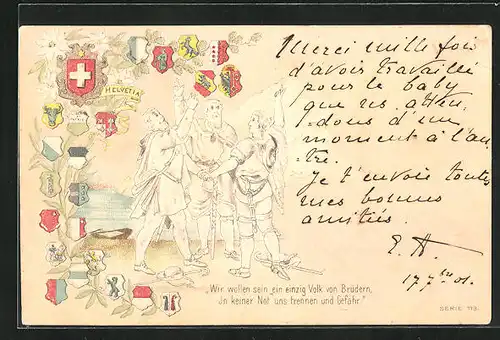 HELVETIA
Merci mille fois
d'avoir travaillé
pour le baby
que ns. atten-
dons d'un
moment à l'au-
tre.
Je t'envoie toutes
mes bonnes
amitiés.
E. A.
17 7bre 01.
„Wir wollen sein ein einzig Volk von Brüdern,
In keiner Not uns trennen und Gefahr."
SERIE 113.